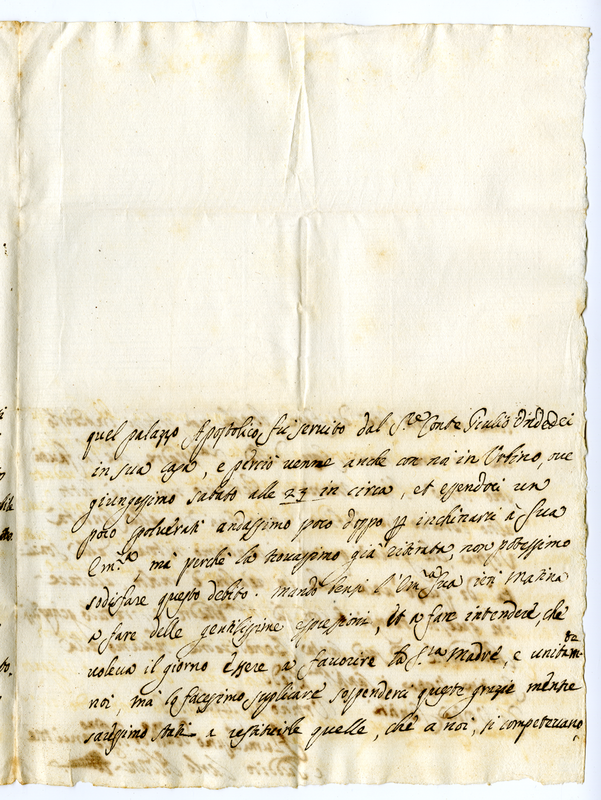 quel palazzo Apostolico fu servito dal S.re Conte Giulio Ondedei
in sua casa, e perciò venne anche con noi in Urbino, ove
giungessimo sabato alle 23 in circa, et essendoci un
poco spolverati andassimo poco doppo p inchinarci à Sua
Em.a, mà perche la trovassimo già ritirata non potessimo
sodisfare questo debito. Mandò bensì l'Em.a Sua ieri matina
a fare delle gentilissime espressioni, et a fare intendere, che
voleva il giorno essere a favorire la S.ra Madre, e unitam.te
noi, mà lo facessimo suplicare sospendere queste grazie mentre
saressimo stati a restituirle quelle, che a noi, si competevano,